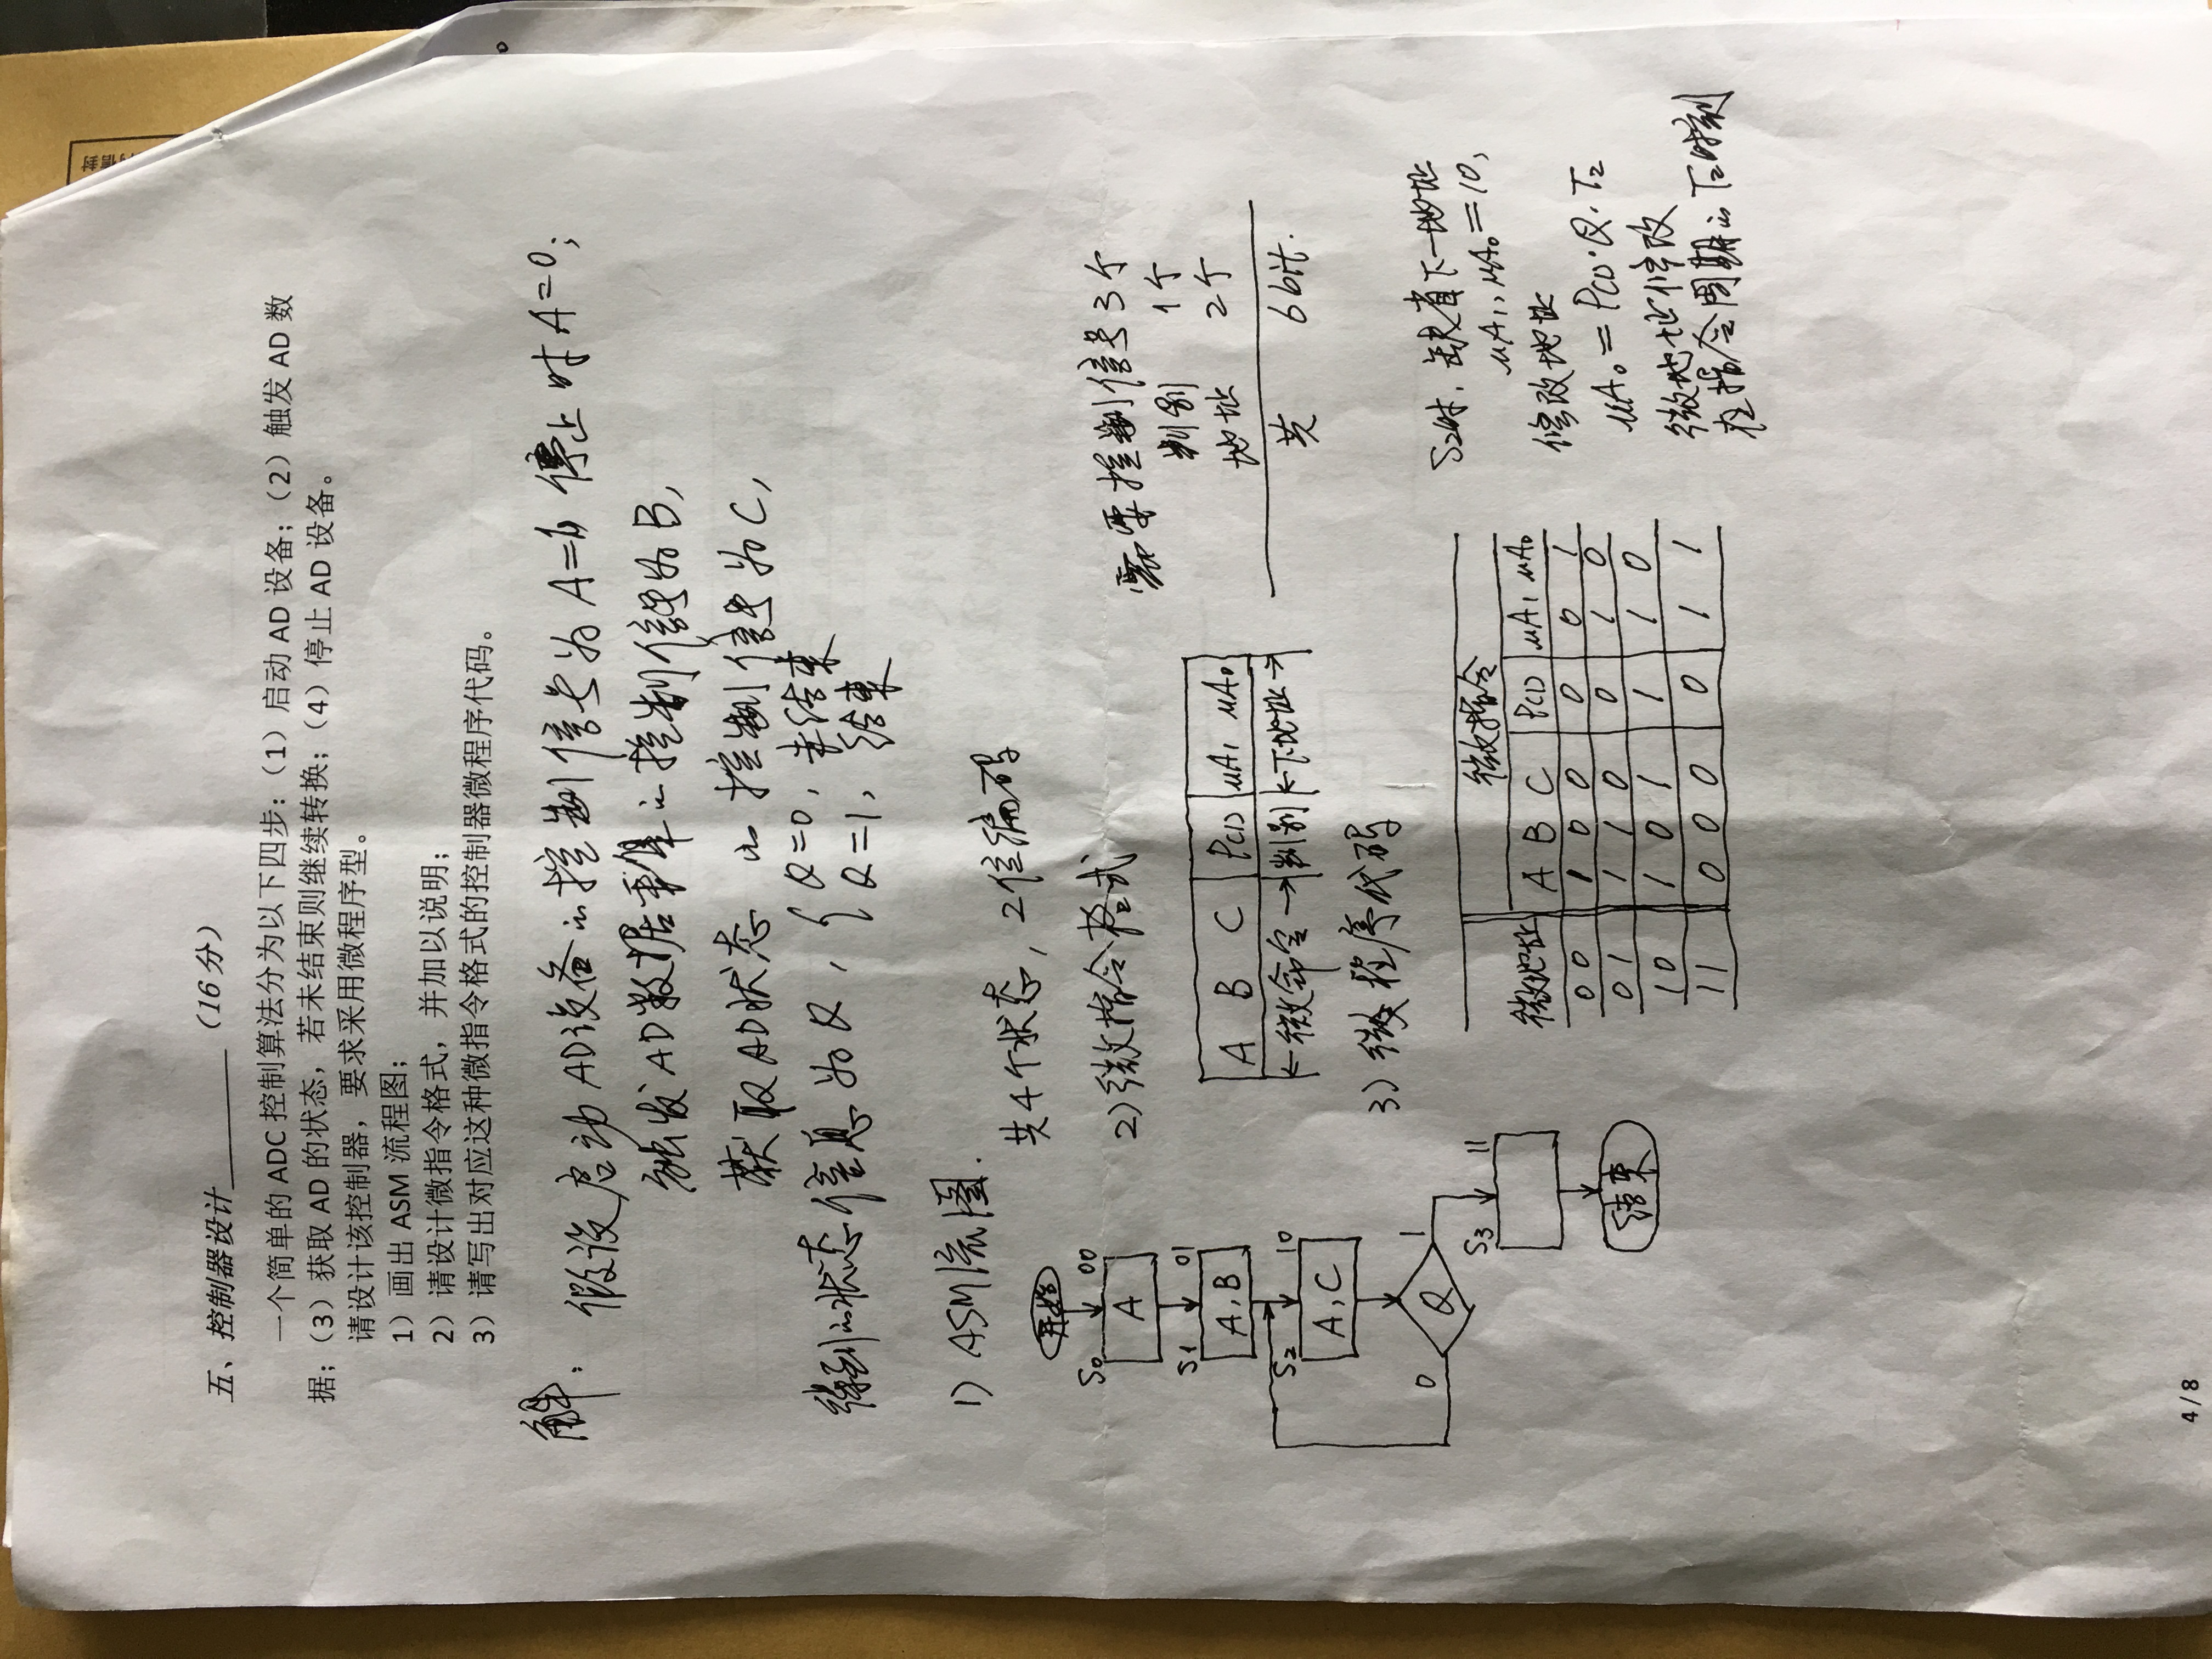 五、控制器设计________（16 分）
一个简单的 ADC 控制算法分为以下四步：（1）启动 AD 设备；（2）触发 AD 数
据；（3）获取 AD 的状态，若未结束则继续转换；（4）停止 AD 设备。
请设计该控制器，要求采用微程序型。
1）画出 ASM 流程图；
2）请设计微指令格式，并加以说明；
3）请写出对应这种微指令格式的控制器微程序代码。
解：
假设启动AD设备的控制信号为A=1, 停止时A=0；
触发AD数据采集的控制信号为B,
获取AD状态 的控制信号为C,
得到的状态信息为Q, { Q=0, 未结束
Q=1, 结束
1) ASM流图.
共4个状态, 2位编码
开始
S0 00
A
S1 01
A,B
S2 10
A,C
0 Q 1
S3 11
结束
2) 微指令格式
A B C P(1) μA1 μA0
←微命令→ 判别 ←下地址→
需要控制信号3个
判别 1个
地址 2个
共 6bit.
3) 微程序代码
微地址 微指令
A B C P(1) μA1 μA0
00 1 0 0 0 0 1
01 1 1 0 0 1 0
10 1 0 1 1 1 0
11 0 0 0 0 1 1
S2时, 缺省下一地址
μA1, μA0=10,
修改地址
μA0=P(1)·Q·T2
微地址修改
在指令周期的T2时刻
4 / 8